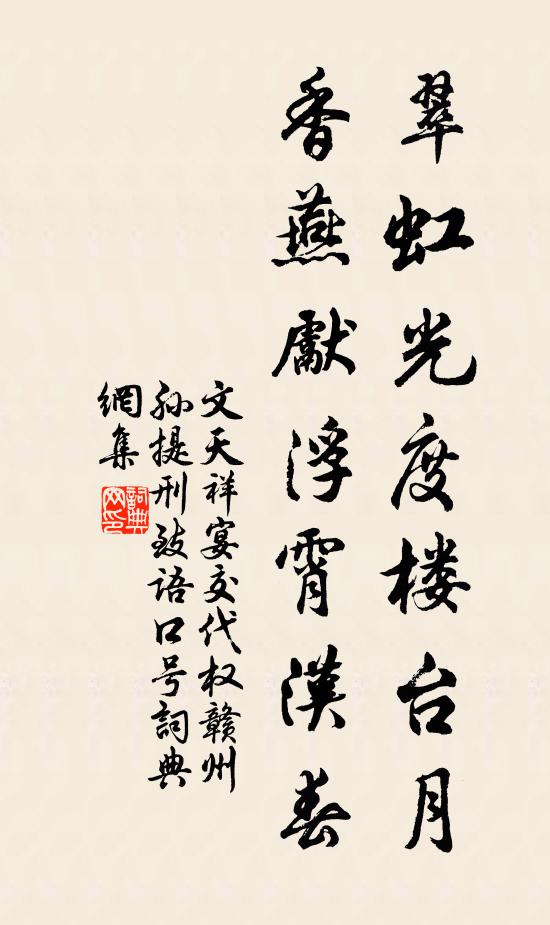 翠虹光度楼台月
香燕獻浮霄漢春
文天祥宴交代权赣州
孙提刑致语口号詞典
網集
詞典網印